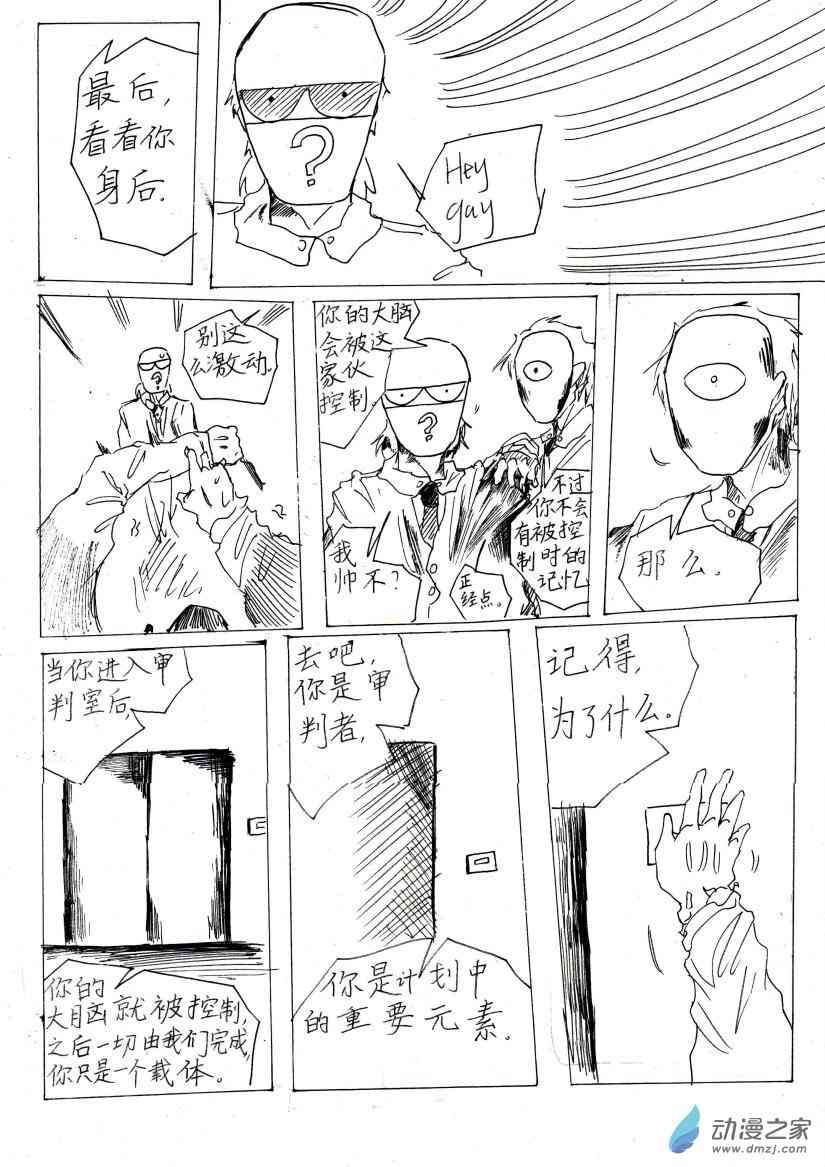 最后，
看看你
身后.
?
Hey
gay
别这
么激动.
?
你的大脑
会被这
家伙
控制.
?
我
帅不?
正
经点。
不过
你不会
有被控
制时的
记忆
那么。
当你进入审
判室后，
你的
大脑就被控制，
之后一切由我们完成，
你只是一个载体。
去吧，
你是审
判者，
你是计划中
的重要元素。
记得，
为了什么。
动漫之家
www.dmzj.com